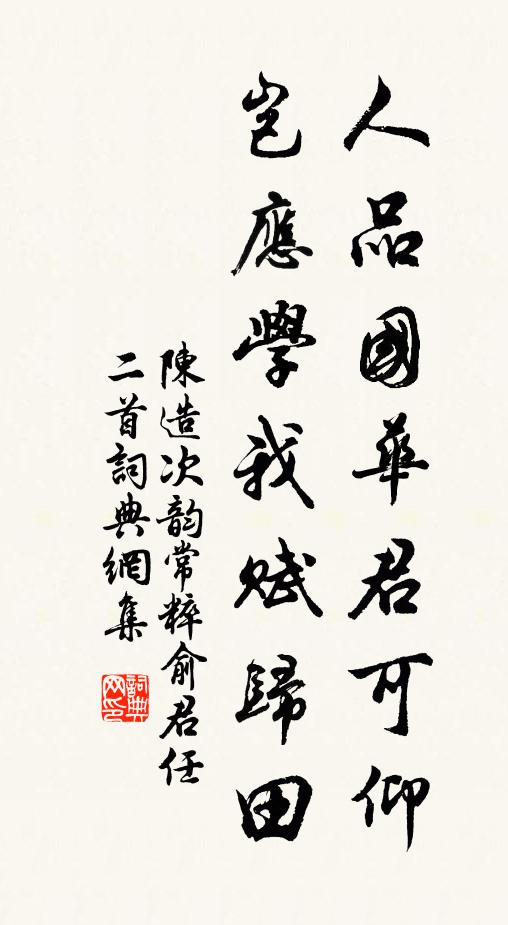 人品國華君可仰
豈應學我賦歸田
陳造次韵常粹俞君任
二首詞典網集
詞典网印